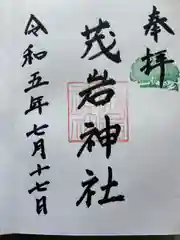 奉拝
茂岩神社
令和五年七月十七日